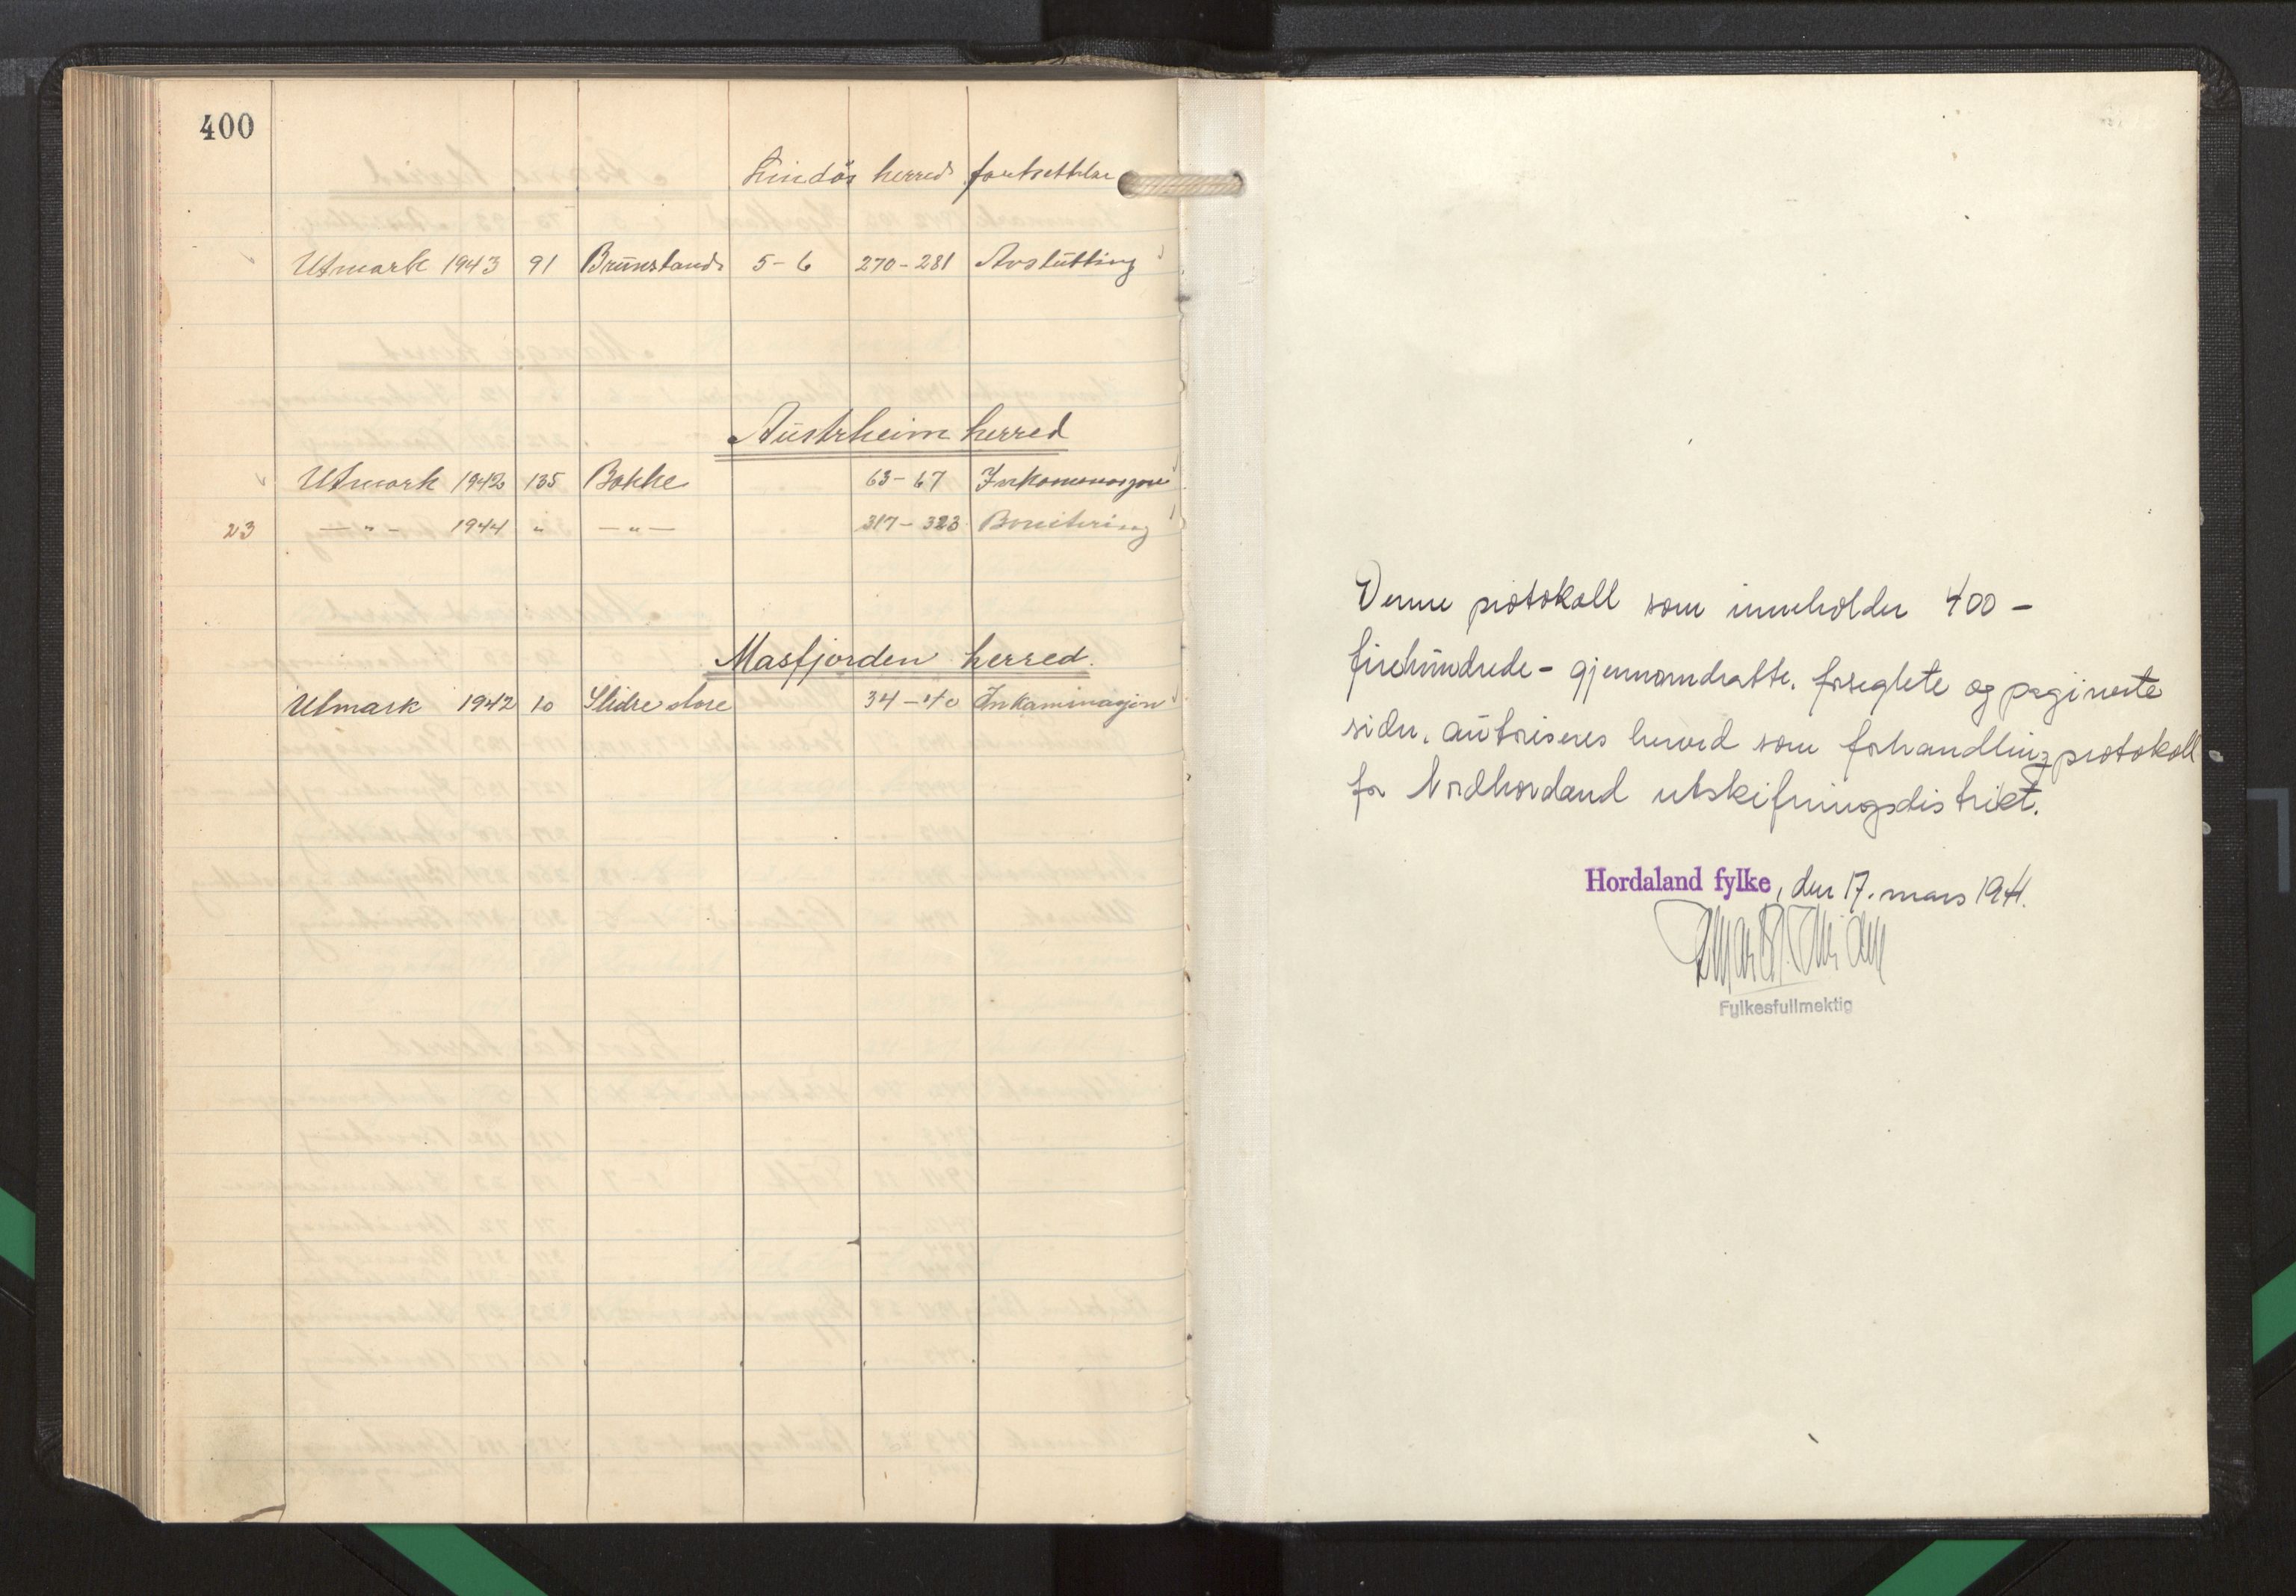 400
Lindås herred fortsettelse
Utmark 1943 91 Brunsland 5-6 270-281 Avslutting
Austrheim herred
Utmark 1942 135 Bakke 63-67 Inkaminasjon
23 —"— 1944 " —"— 317-323 Bonitering
Masfjorden herred.
Utmark 1942 10 Slidre store 34-40 Inkaminasjon
Denne protokoll som inneholder 400 -
firehundrede - gjennomdratte, forseglete og paginerte
sider, autoriseres herved som forhandlingsprotokoll
for Nordhordland utskifningsdistrikt.
Hordaland fylke, den 17. mars 1941.
Fylkesfullmektig